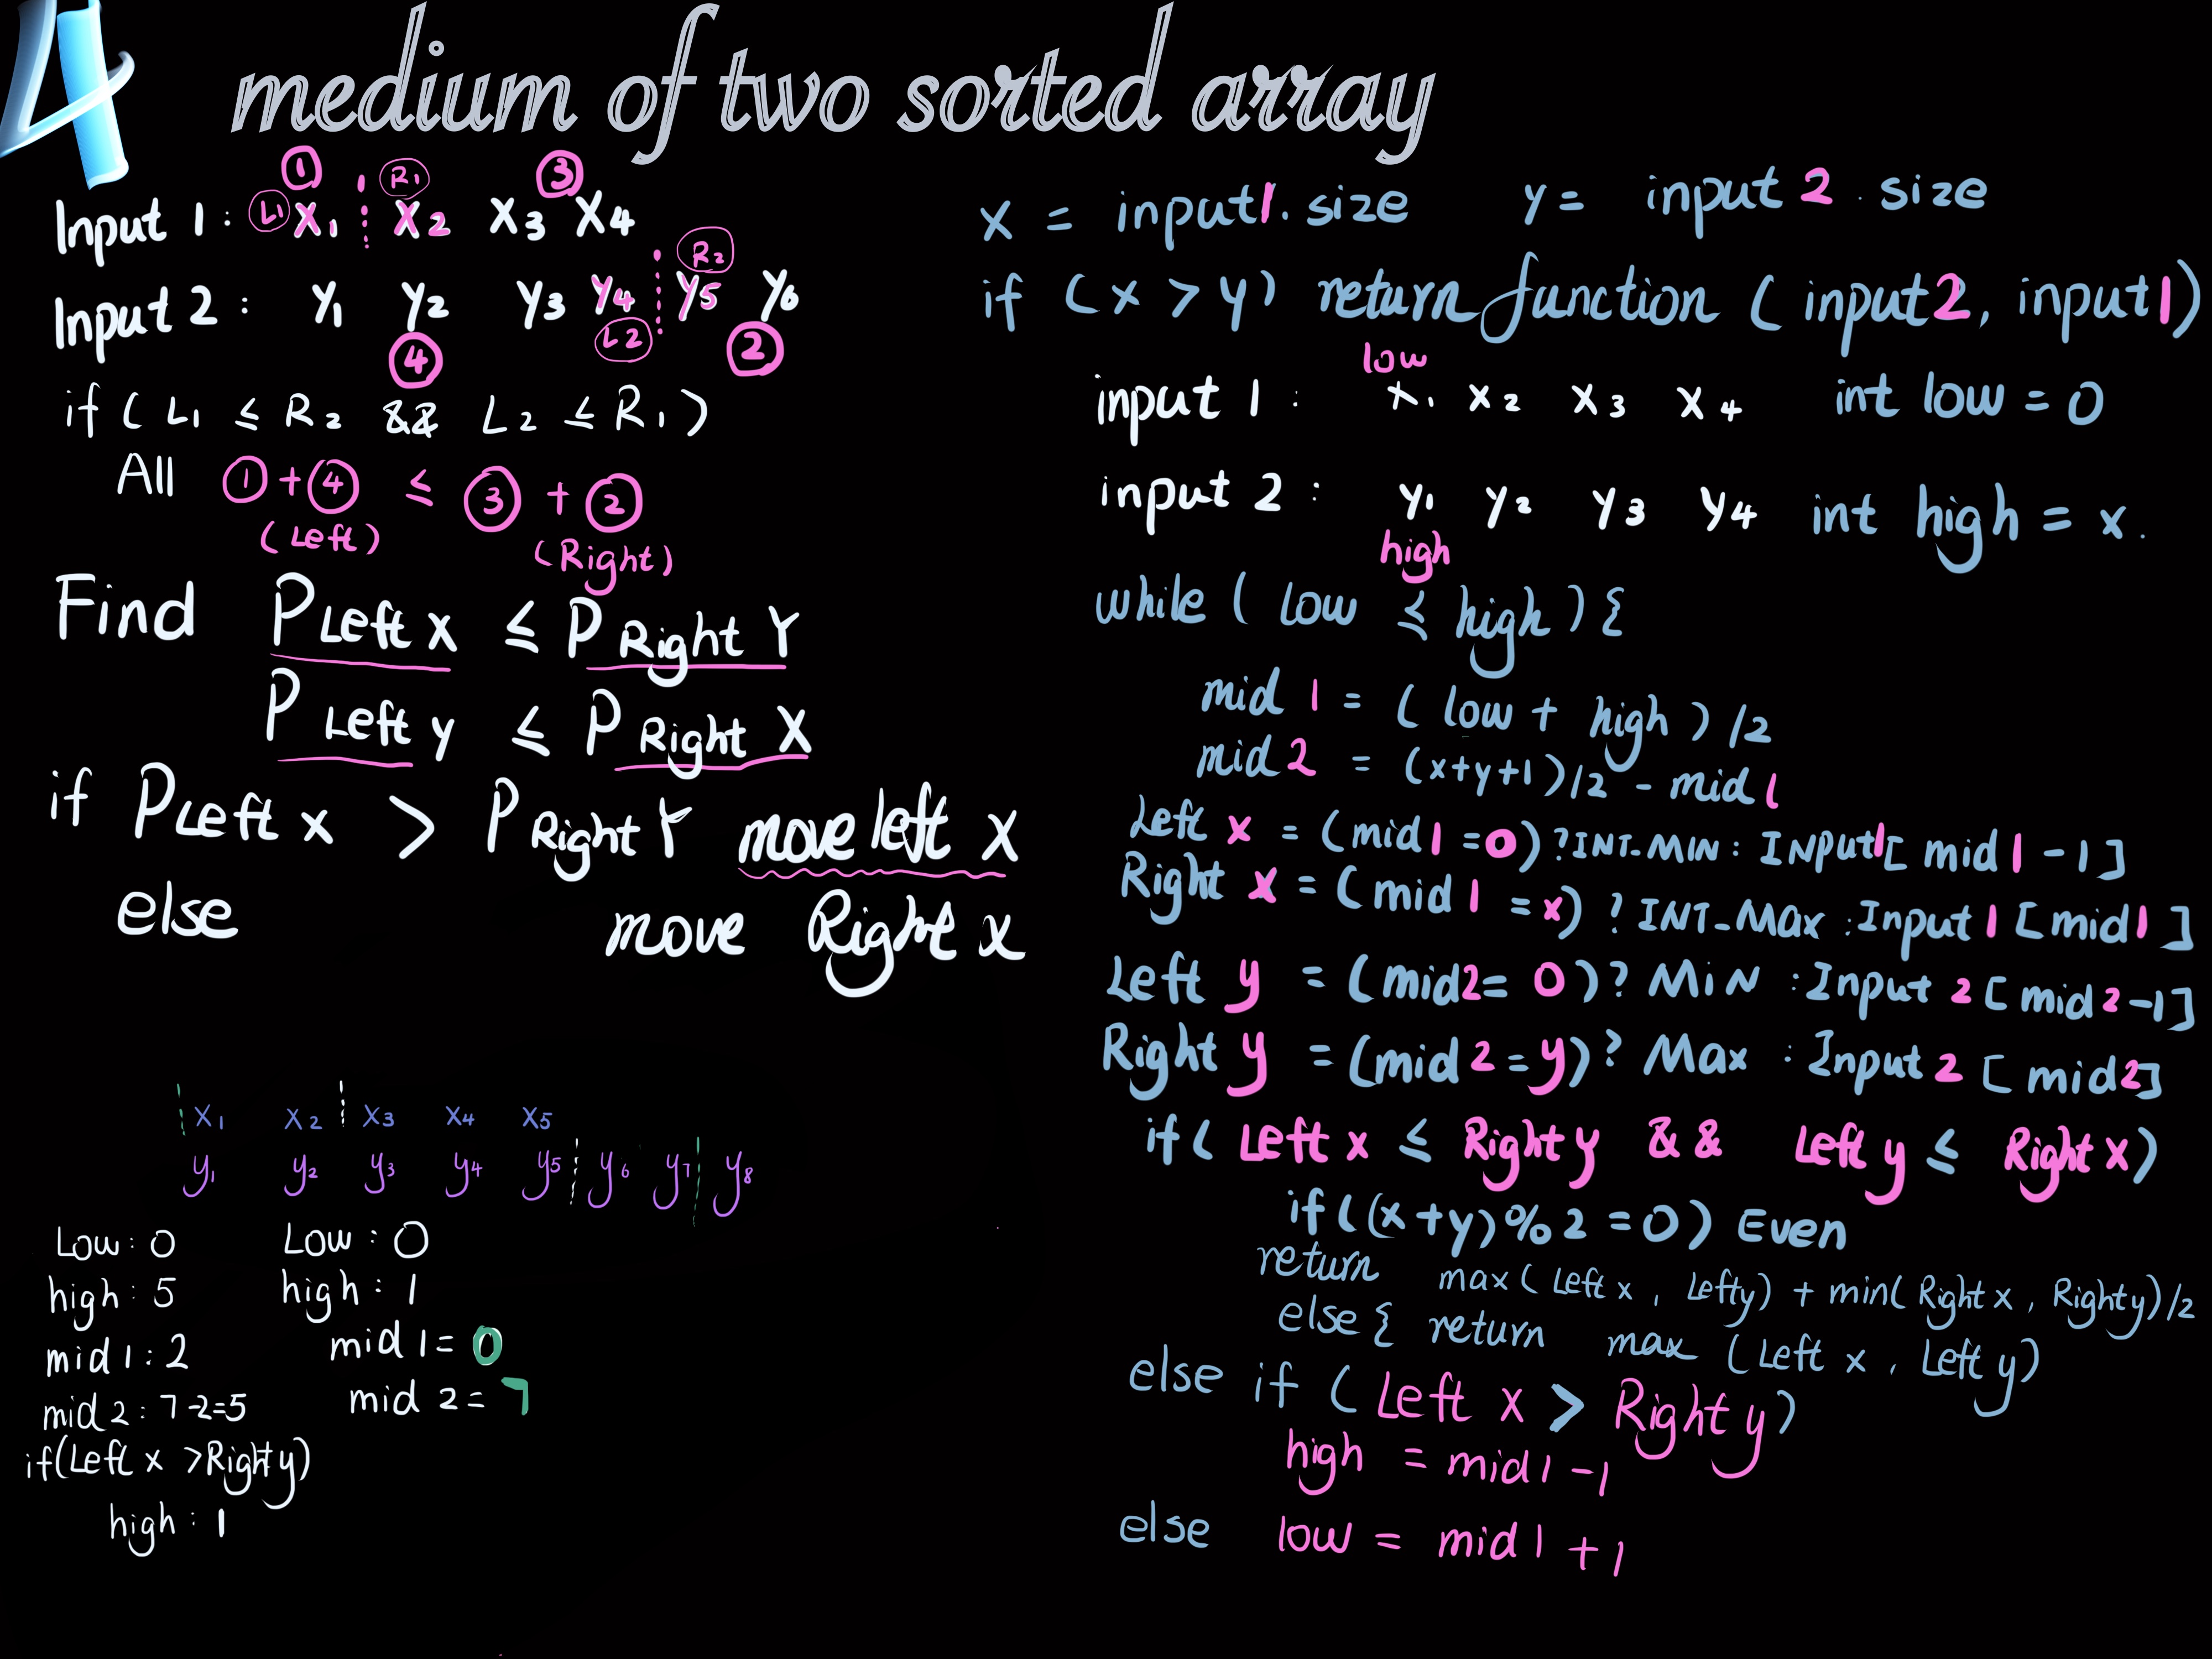 4 medium of two sorted array
① R1 ③
Input 1 : L1 X1 X2 X3 X4
R2
Input 2 : y1 y2 y3 y4 y5 y6
④ L2 ②
if ( L1 ≤ R2 && L2 ≤ R1 )
All ① + ④ ≤ ③ + ②
(Left) (Right)
Find PLeft x ≤ P Right Y
P Left y ≤ P Right X
if PLeft x > P Right Y move left X
else move Right x
X1 X2 X3 X4 X5
y1 y2 y3 y4 y5 y6 y7 y8
Low : 0 Low : 0
high : 5 high : 1
mid 1 : 2 mid 1 = 0
mid 2 : 7-2=5 mid 2 = 7
if(Left x >Right y)
high : 1
x = input1. size y = input 2 . size
if ( x > y ) return function ( input2, input1)
low
input 1 : x1 x2 x3 x4 int low = 0
input 2 : y1 y2 y3 y4 int high = x.
high
while ( low ≤ high ) {
mid 1 = ( low + high ) /2
mid 2 = (x+y+1)/2 - mid 1
Left x = (mid 1 =0) ?INT-MIN : INput1[ mid 1 -1 ]
Right x = (mid 1 = x) ? INT-Max :Input 1 [mid1 ]
Left y = (mid2= 0)? MiN :Input 2 [ mid 2 -1]
Right y = (mid 2 =y)? Max :Input 2 [ mid2]
if( Left x ≤ Right y && Left y ≤ Right x)
if((x+y)%2 =0) Even
return max( Left x , Left y) + min( Right x , Right y)/2
else { return max (Left x , Left y)
else if ( Left x > Right y)
high = mid1 -1
else low = mid 1 +1